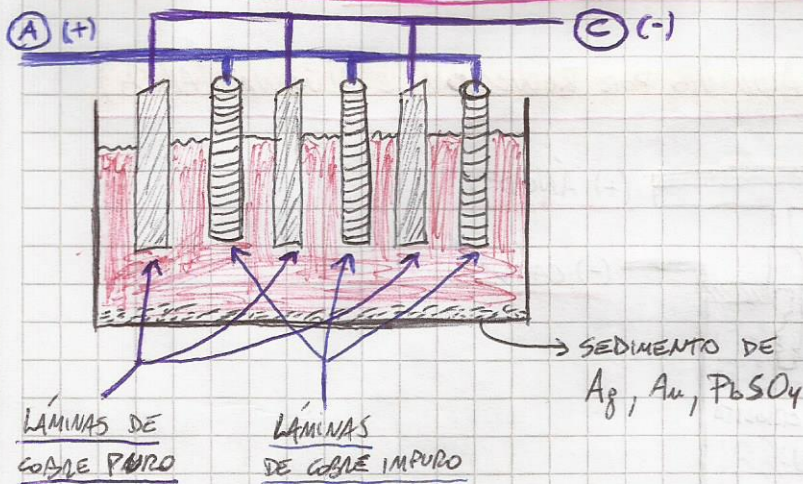 A (+)
C (-)
SEDIMENTO DE
Ag, Au, PbSO4
LÁMINAS DE
COBRE PURO
LÁMINAS
DE COBRE IMPURO